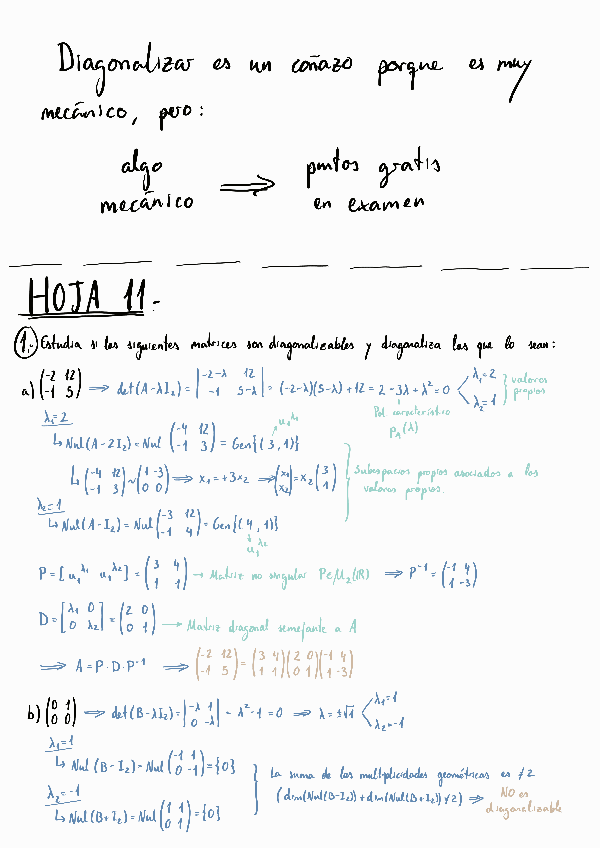 Diagonalizar es un coñazo porque es muy
mecánico, pero:
algo mecánico ⟹ puntos gratis en examen
HOJA 11.-
1.- Estudia si las siguientes matrices son diagonalizables y diagonaliza las que lo sean:
a) (-2 12; -1 5) ⟹ det(A-λI₂) = |-2-λ 12; -1 5-λ| = (-2-λ)(5-λ)+12 = 2-3λ+λ² = 0 λ₁=2 λ₂=1 valores propios
Pol. característico
P_A(λ)
λ₁=2
u₁^λ₁
↳ Nul(A-2I₂) = Nul (-4 12; -1 3) = Gen{(3,1)}
↳ (-4 12; -1 3) ~ (1 -3; 0 0) ⟹ x₁ = +3x₂ ⟹ (x₁; x₂) = x₂ (3; 1)
Subespacios propios asociados a los
valores propios.
λ₂=1
↳ Nul(A-I₂) = Nul (-3 12; -1 4) = Gen{(4,1)}
u₁^λ₂
P = [u₁^λ₁ u₁^λ₂] = (3 4; 1 1) → Matriz no singular P∈M₂(ℝ) ⟹ P⁻¹ = (-1 4; 1 -3)
D = [λ₁ 0; 0 λ₂] = (2 0; 0 1) → Matriz diagonal semejante a A
⟹ A = P·D·P⁻¹ ⟹ (-2 12; -1 5) = (3 4; 1 1)(2 0; 0 1)(-1 4; 1 -3)
b) (0 1; 0 0) ⟹ det(B-λI₂) = |-λ 1; 0 -λ| = λ²-1 = 0 ⟹ λ = ±√1 λ₁=1 λ₂=-1
λ₁=1
↳ Nul(B-I₂) = Nul (-1 1; 0 -1) = {0}
λ₂=-1
↳ Nul(B+I₂) = Nul (1 1; 0 1) = {0}
La suma de las multiplicidades geométricas es ≠2
(dim(Nul(B-I₂)) + dim(Nul(B+I₂)) ≠ 2) ⟹ NO es
diagonalizable